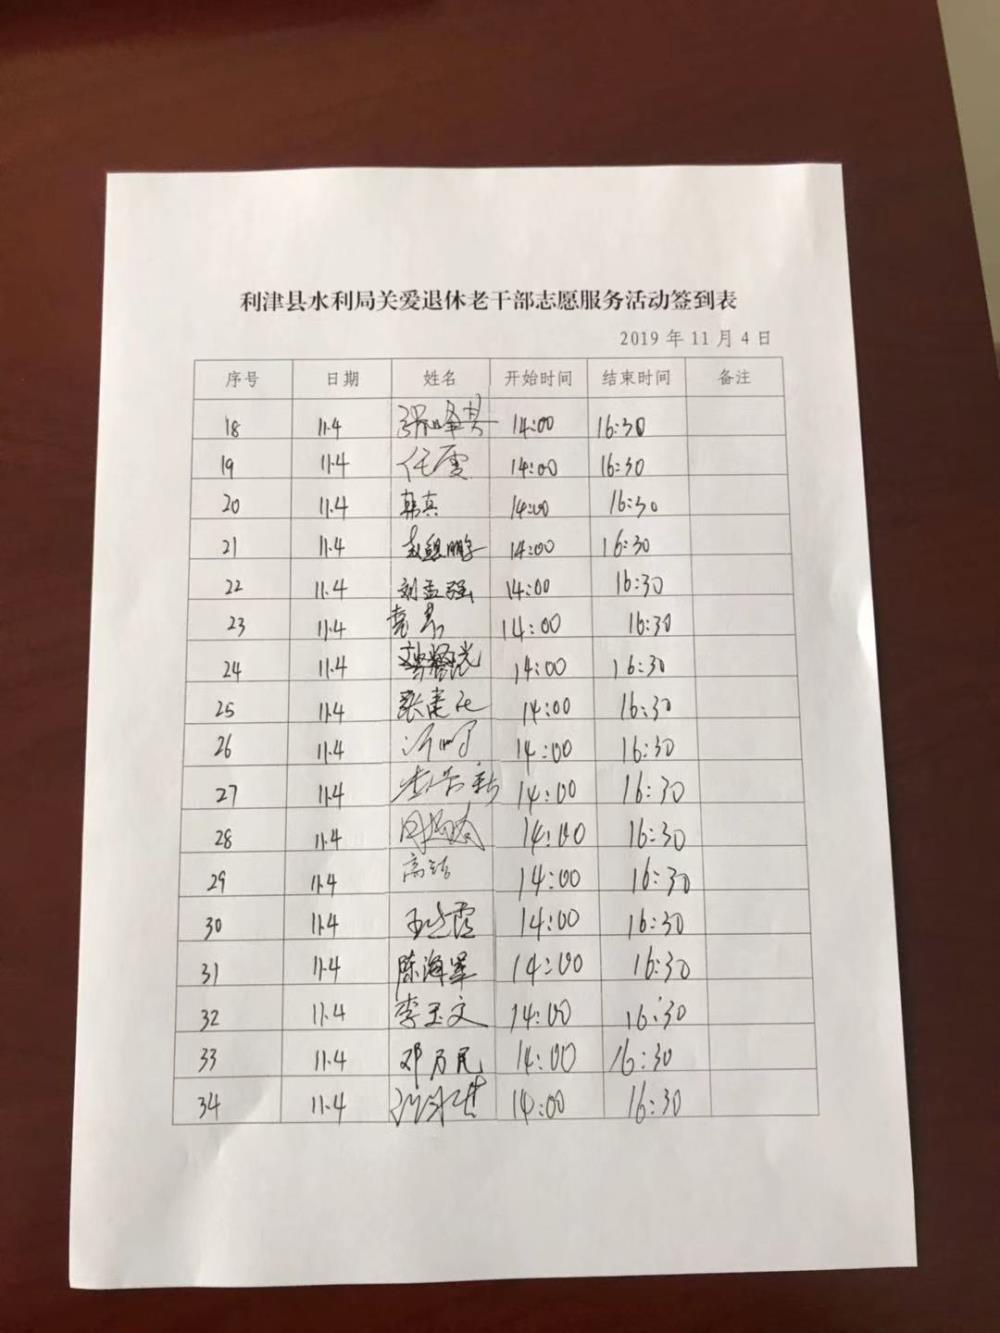 利津县水利局关爱退休老干部志愿服务活动签到表
2019 年 11 月 4 日
序号 日期 姓名 开始时间 结束时间 备注
18 11.4 14:00 16:30
19 11.4 任雪 14:00 16:30
20 11.4 韩真 14:00 16:30
21 11.4 14:00 16:30
22 11.4 刘孟强 14:00 16:30
23 11.4 14:00 16:30
24 11.4 14:00 16:30
25 11.4 14:00 16:30
26 11.4 14:00 16:30
27 11.4 14:00 16:30
28 11.4 14:00 16:30
29 11.4 高洁 14:00 16:30
30 11.4 14:00 16:30
31 11.4 陈海军 14:00 16:30
32 11.4 李玉文 14:00 16:30
33 11.4 邓万民 14:00 16:30
34 11.4 14:00 16:30